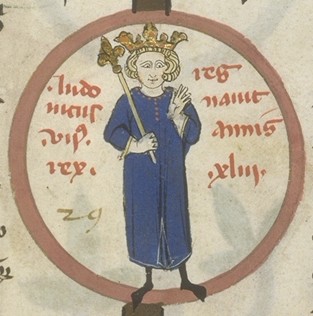 ·ludo
uicus
·viꝰ.
rex.
reg
nauit
annis
.xliii.
29